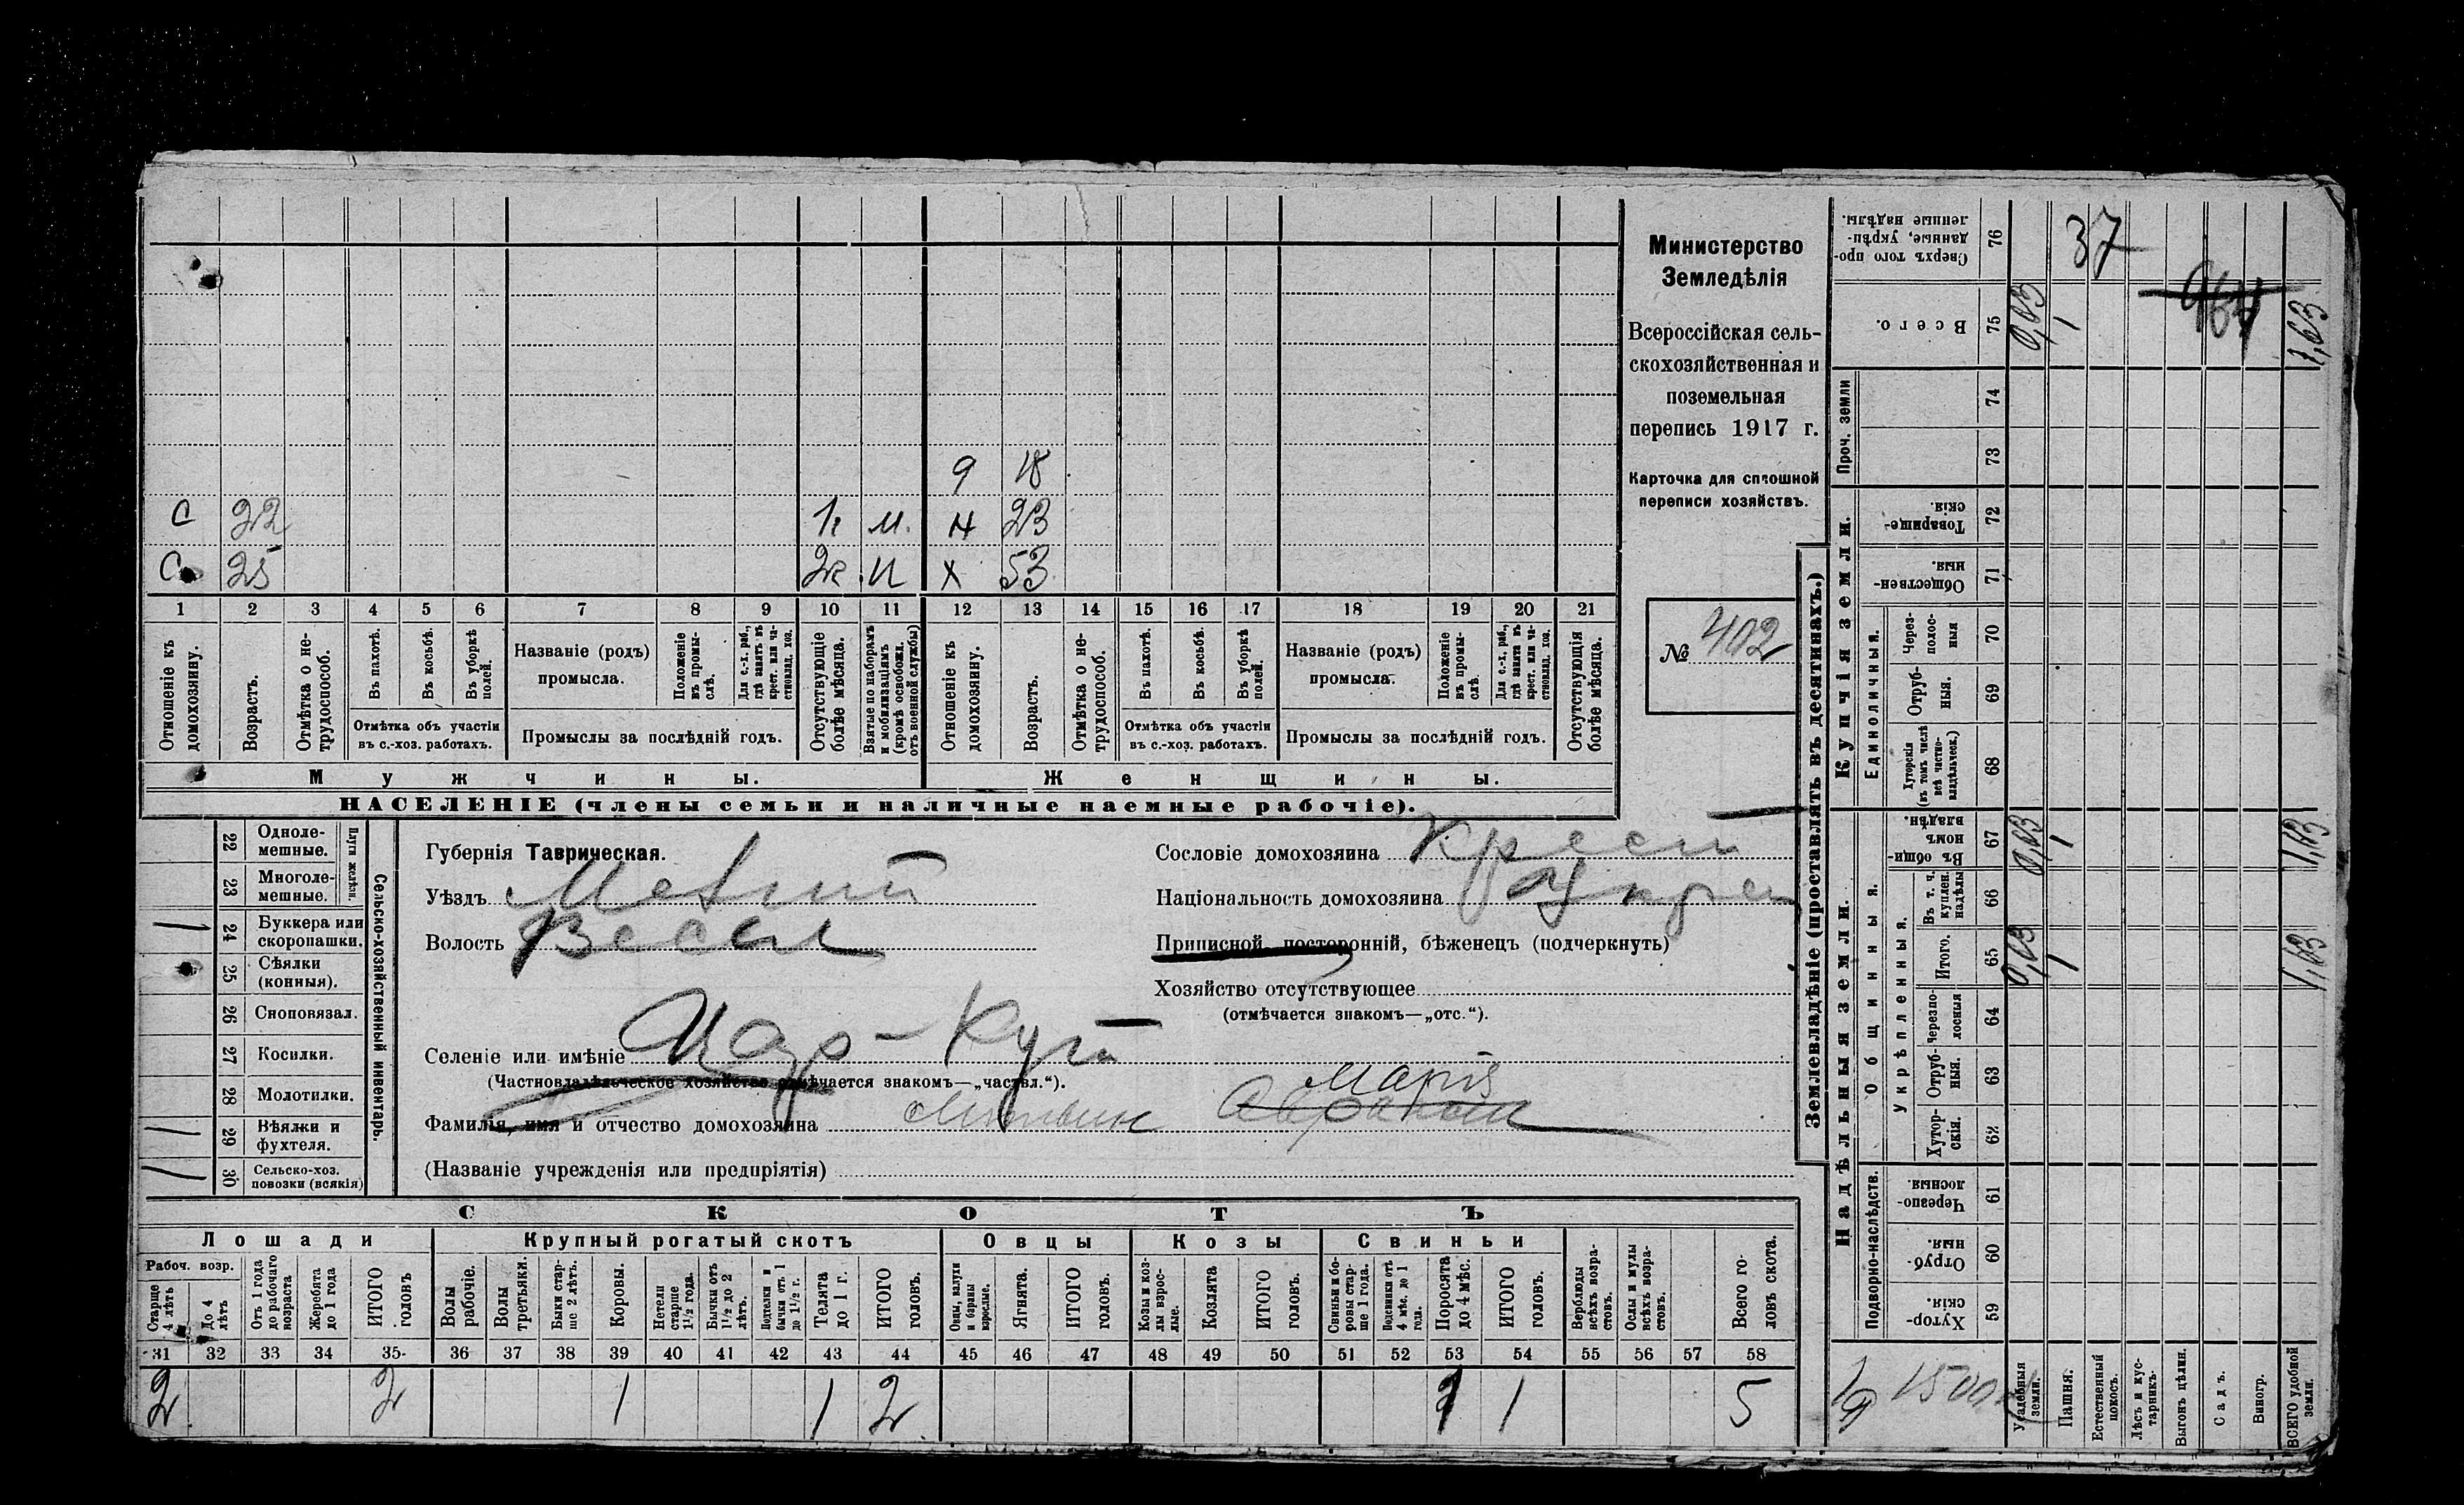 С 22 1 г. м. н 23
С 25 2 г. м х 53
9 18
1 2 3 4 5 6 7 8 9 10 11 12 13 14 15 16 17 18 19 20 21
Отношеніе къ домохозяину.
Возрастъ.
Отмѣтка о не-
трудоспособ.
Въ пахотѣ.
Въ косьбѣ.
Въ уборкѣ
полей.
Отмѣтка объ участіи
въ с.-хоз. работахъ.
Названіе (родъ)
промысла.
Положеніе
въ промы-
слѣ.
Для с.-х. раб.,
гдѣ занятъ въ
крест. или ча-
стновлад. хоз.
Промыслы за послѣдній годъ.
Отсутствующіе
болѣе мѣсяца.
Взятые по наборамъ
и мобилизаціямъ
(кромѣ освобожд.
отъ военной службы)
Отношеніе къ
домохозяину.
Возрастъ.
Отмѣтка о не-
трудоспособ.
Въ пахотѣ.
Въ косьбѣ.
Въ уборкѣ
полей.
Отмѣтка объ участіи
въ с.-хоз. работахъ.
Названіе (родъ)
промысла.
Положеніе
въ промы-
слѣ.
Для с.-х. раб.,
гдѣ занята въ
крест. или ча-
стновлад. хоз.
Промыслы за послѣдній годъ.
Отсутствующія
болѣе мѣсяца.
Мужчины.
Женщины.
НАСЕЛЕНІЕ (члены семьи и наличные наемные рабочіе).
Министерство
Земледѣлія
Всероссійская сель-
скохозяйственная и
поземельная
перепись 1917 г.
Карточка для сплошной
переписи хозяйствъ.
№ 402
Сельско-хозяйственный инвентарь.
Плуги желѣзн.
22 Одноле-
мешные.
23 Многоле-
мешные.
1 24 Буккера или
скоропашки.
25 Сѣялки
(конныя).
26 Сноповязал.
27 Косилки.
28 Молотилки.
1 29 Вѣялки и
фухтеля.
1 30 Сельско-хоз.
повозки (всякія)
Губернія Таврическая.
Уѣздъ Мелит
Волость Весел
Селеніе или имѣніе Цар-Кут
(Частновладѣльческое хозяйство отмѣчается знакомъ—„частвл.“).
Марія
Фамилія, имя и отчество домохозяина Литвин
(Названіе учрежденія или предпріятія)
Сословіе домохозяина Крест
Національность домохозяина Украен
Приписной, посторонній, бѣженецъ (подчеркнуть)
Хозяйство отсутствующее
(отмѣчается знакомъ—„отс.“).
СКОТЪ
Лошади
Крупный рогатый скотъ
Овцы
Козы
Свиньи
Рабоч. возр.
Старше
4 лѣтъ
До 4
лѣтъ
Отъ 1 года
до рабочаго
возраста
Жеребята
до 1 года
ИТОГО
головъ
Волы
рабочіе.
Волы
третьяки.
Быки стар-
ше 2 лѣтъ.
Коровы.
Нетели
старше
1½ года.
Бычки отъ
1½ до 2
лѣтъ.
Подтелки и
бычки отъ 1
до 1½ г.
Телята
до 1 г.
ИТОГО
головъ.
Овцы, валухи
и бараны
взрослые.
Ягнята.
ИТОГО
головъ.
Козы и коз-
лы взрос-
лые.
Козлята
ИТОГО
головъ.
Свиньи и бо-
ровы стар-
ше 1 года.
Подсвинки отъ
4 мѣс. до 1
года.
Поросята
до 4 мѣс.
ИТОГО
головъ.
Верблюды
всѣхъ возра-
стовъ.
Ослы и мулы
всѣхъ возра-
стовъ.
Всего го-
ловъ скота.
31 32 33 34 35 36 37 38 39 40 41 42 43 44 45 46 47 48 49 50 51 52 53 54 55 56 57 58
2 2 1 1 2 1 1 5
Землевладѣніе (проставлять въ десятинахъ.)
Надѣльныя земли.
Купчія земли.
Проч. земли
Подворно-наслѣдств.
Общинныя.
Укрѣпленныя.
Единоличныя.
Сверхъ того про-
данные, укрѣп-
ленные надѣлы.
76
37
Всего.
75 0,63 1 1,63
74
73
Товарище-
скія.
72
Обществен-
ныя.
71
Через-
полос-
ныя
70
Отруб-
ныя.
69
Хуторскія
(въ томъ числѣ
всѣ частно-
владѣльческ.)
68
Въ общи-
номъ
владѣн.
67 0,63 1 1,63
Въ т. ч.
куплен.
надѣлы
66
Итого.
65 0,63 1 1,63
Черезпо-
лосныя
64
Отруб-
ныя.
63
Хутор-
скія.
62
Черезпо-
лосныя
61
Отруб-
ныя.
60
Хутор-
скія.
59
1500
Усадебныя
земли.
Пашня.
Естественный
покосъ.
Лѣсъ и кус-
тарникъ.
Выгонъ цѣлин.
Садъ.
Виногр.
ВСЕГО удобной
земли.